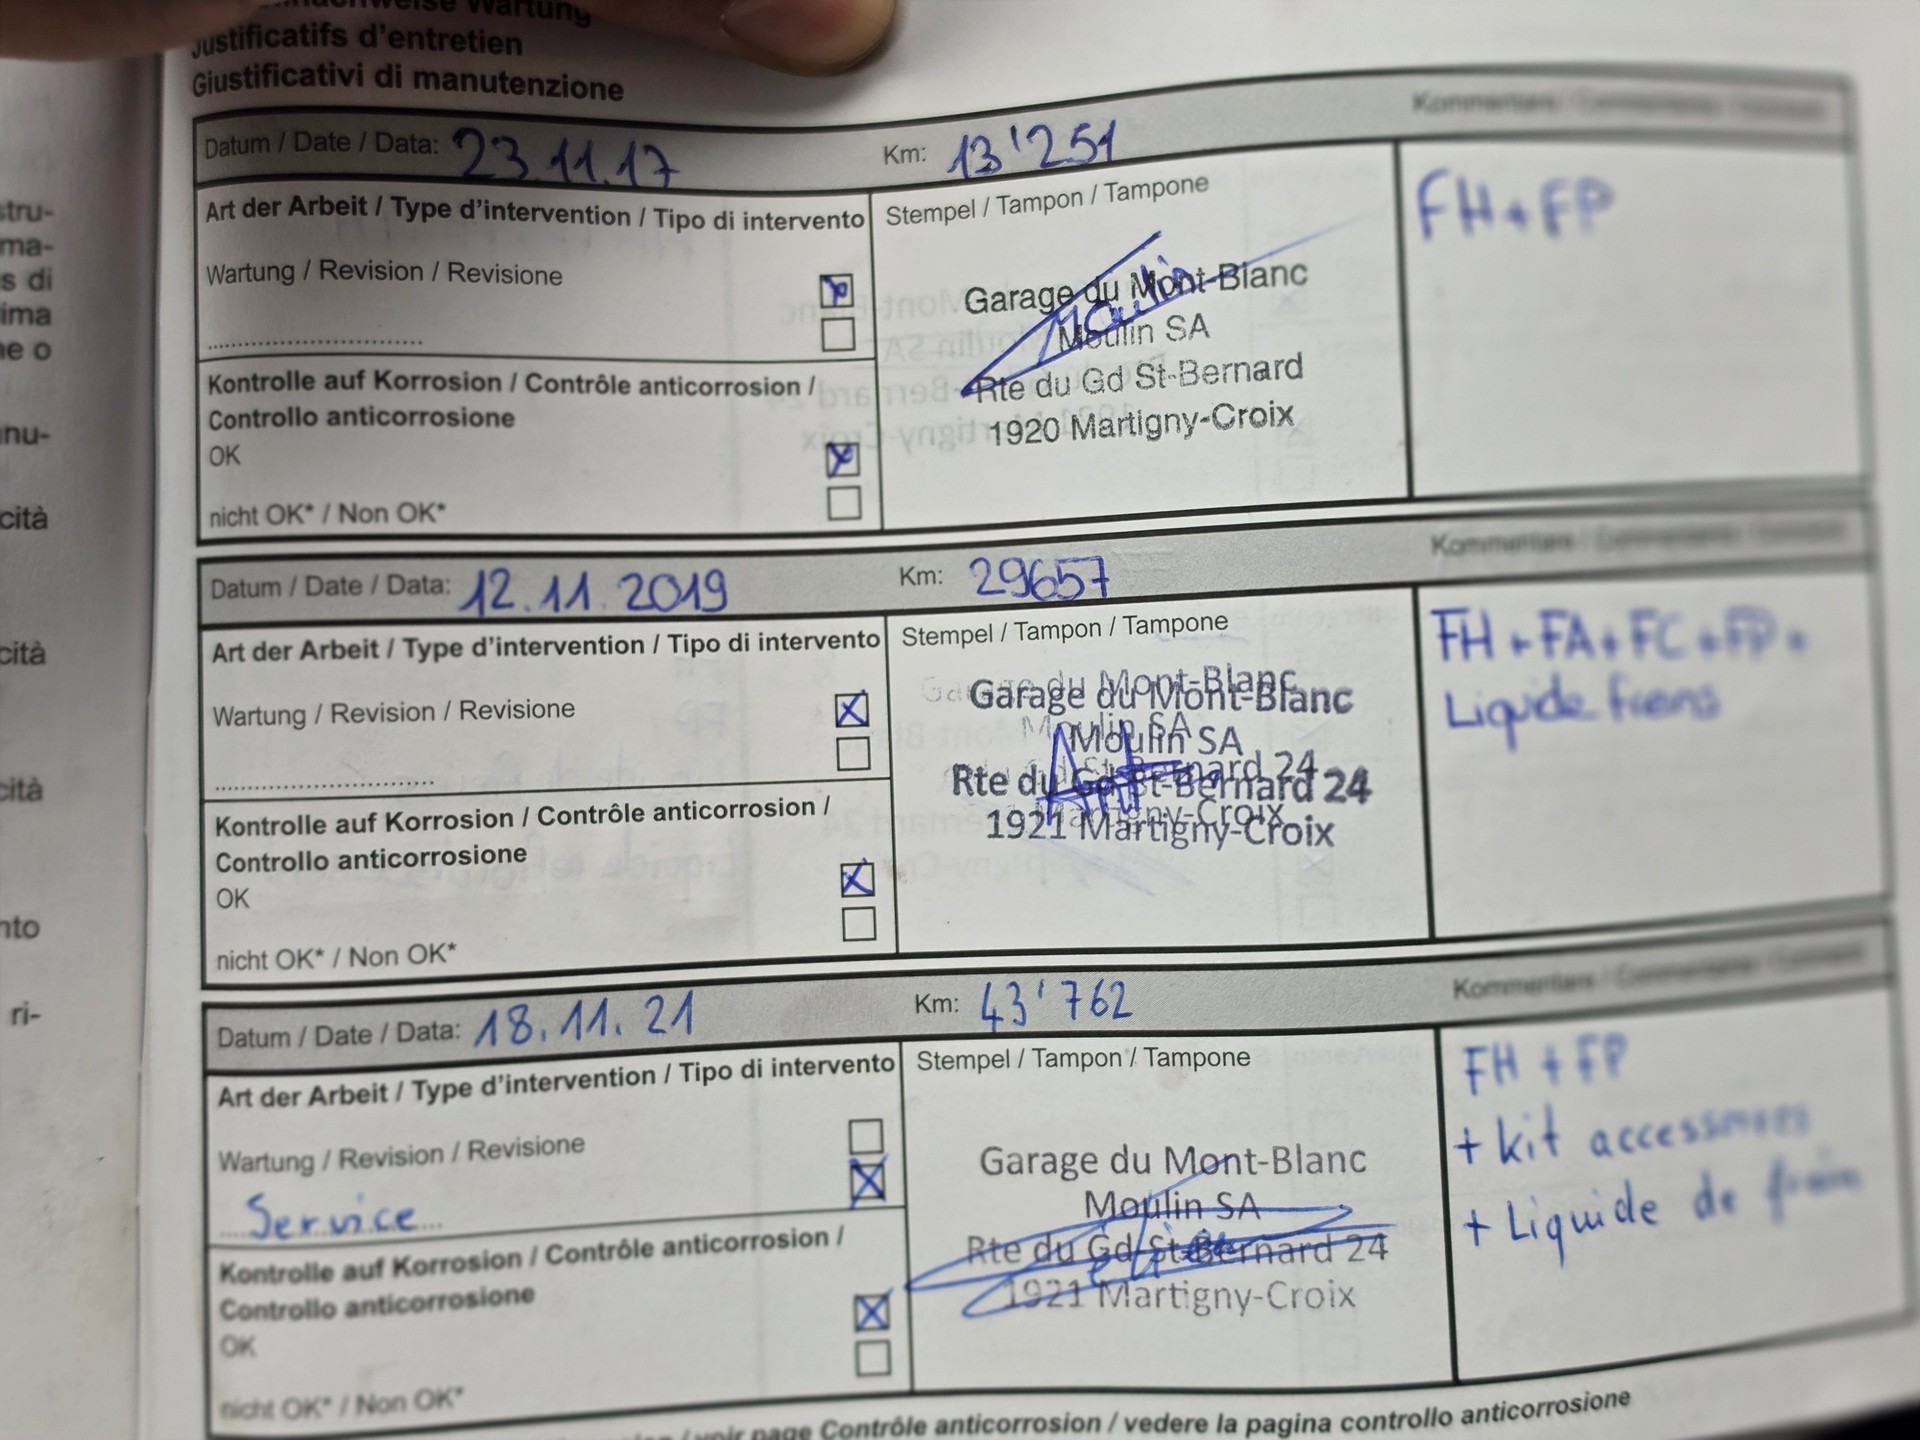 Wartung
Justificatifs d'entretien
Giustificativi di manutenzione
Datum / Date / Data: 23.11.17 Km: 13'251
Art der Arbeit / Type d'intervention / Tipo di intervento
Stempel / Tampon / Tampone
FH + FP
Wartung / Revision / Revisione
Garage du Mont-Blanc
Moulin SA
Rte du Gd St-Bernard
1920 Martigny-Croix
Kontrolle auf Korrosion / Contrôle anticorrosion /
Controllo anticorrosione
OK
nicht OK* / Non OK*
Kommentare
Datum / Date / Data: 12.11.2019 Km: 29657
Art der Arbeit / Type d'intervention / Tipo di intervento
Stempel / Tampon / Tampone
FH + FA + FC + FP +
Liquide freins
Wartung / Revision / Revisione
Garage du Mont-Blanc
Moulin SA
Rte du Gd St-Bernard 24
1921 Martigny-Croix
Kontrolle auf Korrosion / Contrôle anticorrosion /
Controllo anticorrosione
OK
nicht OK* / Non OK*
Kommentare
Datum / Date / Data: 18.11.21 Km: 43'762
Art der Arbeit / Type d'intervention / Tipo di intervento
Stempel / Tampon / Tampone
FH + FP
+ kit accessoires
+ Liquide de frein
Wartung / Revision / Revisione
Service
Garage du Mont-Blanc
Moulin SA
Rte du Gd St-Bernard 24
1921 Martigny-Croix
Kontrolle auf Korrosion / Contrôle anticorrosion /
Controllo anticorrosione
OK
nicht OK* / Non OK*
/ voir page Contrôle anticorrosion / vedere la pagina controllo anticorrosione